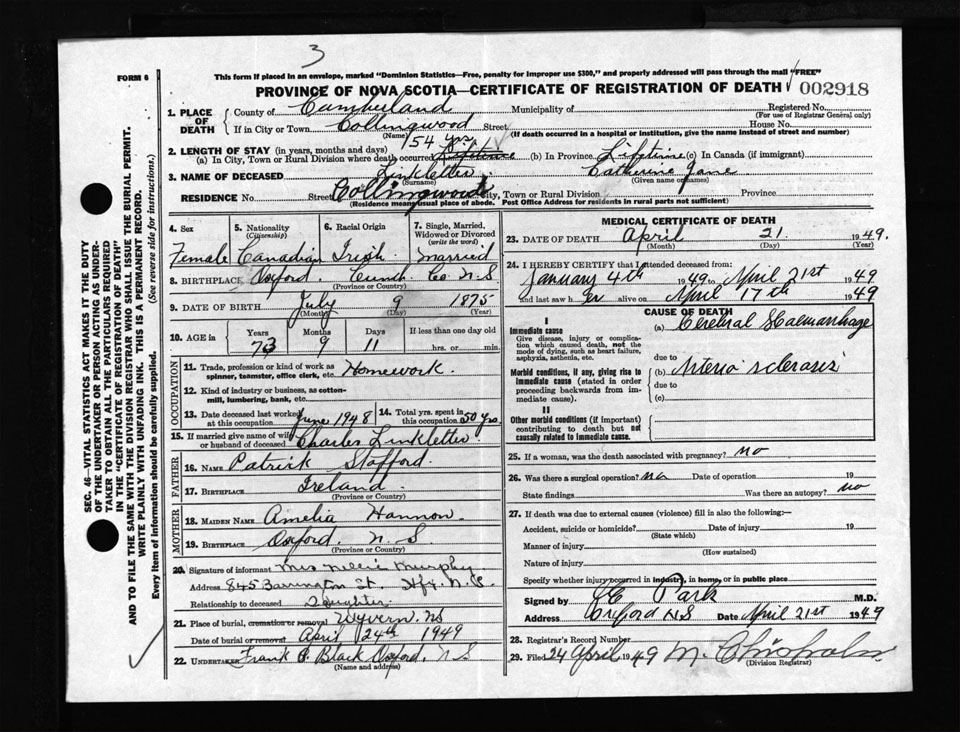 3
FORM 6
This form if placed in an envelope, marked "Dominion Statistics—Free, penalty for improper use $300," and properly addressed will pass through the mail "FREE"
PROVINCE OF NOVA SCOTIA—CERTIFICATE OF REGISTRATION OF DEATH
002918
1. PLACE OF DEATH
County of Cumberland Municipality of Registered No.
(For use of Registrar General only)
If in City or Town Collingwood Street House No.
(Name) (If death occurred in a hospital or institution, give the name instead of street and number)
54 yrs.
2. LENGTH OF STAY (in years, months and days)
(a) In City, Town or Rural Division where death occurred Lifetime (b) In Province Lifetime (c) In Canada (if immigrant)
3. NAME OF DECEASED Linkletter Catherine Jane
(Surname) (Given name or names)
RESIDENCE No. Street Collingwood City, Town or Rural Division Province
(Residence means usual place of abode. Post Office Address for residents in rural parts not sufficient)
4. Sex
Female
5. Nationality
(Citizenship)
Canadian
6. Racial Origin
Irish
7. Single, Married, Widowed or Divorced
(write the word)
Married
8. BIRTHPLACE Oxford, Cumb. Co. N.S
(Province or Country)
9. DATE OF BIRTH July 9 1875
(Month) (Day) (Year)
10. AGE in
Years Months Days If less than one day old
73 9 11 hrs. or min.
OCCUPATION
11. Trade, profession or kind of work as spinner, teamster, office clerk, etc. Homework.
12. Kind of industry or business, as cotton-mill, lumbering, bank, etc.
13. Date deceased last worked at this occupation June 1948
14. Total yrs. spent in this occupation 50 yrs.
15. If married give name of wife or husband of deceased Charles Linkletter
FATHER
16. NAME Patrick Stafford.
17. BIRTHPLACE Ireland.
(Province or Country)
MOTHER
18. MAIDEN NAME Amelia Hannon.
19. BIRTHPLACE Oxford. N.S.
(Province or Country)
20. Signature of informant Mrs Nellie Murphy
Address 845 Barrington St. Hfx. N.S.
Relationship to deceased Daughter.
21. Place of burial, cremation or removal Wyvern. NS
Date of burial or removal April 24th 1949
22. Undertaker Frank Black Oxford. N S
(Name and address)
MEDICAL CERTIFICATE OF DEATH
23. DATE OF DEATH April 21. 1949.
(Month) (Day) (Year)
24. I HEREBY CERTIFY that I attended deceased from:
January 4th 1949 to April 21st 1949
and last saw her alive on April 17th 1949
CAUSE OF DEATH
I
Immediate cause
Give disease, injury or complication which caused death, not the mode of dying, such as heart failure, asphyxia, asthenia, etc.
(a) Cerebral Haemorrhage
due to
Morbid conditions, if any, giving rise to immediate cause (stated in order proceeding backwards from immediate cause).
(b) Arterio sclerosis
due to
(c)
II
Other morbid conditions (if important) contributing to death but not causally related to immediate cause.
25. If a woman, was the death associated with pregnancy? no
26. Was there a surgical operation? no Date of operation 19
State findings Was there an autopsy? no
27. If death was due to external causes (violence) fill in also the following:—
Accident, suicide or homicide? Date of injury 19
(State which)
Manner of injury
(How sustained)
Nature of injury
Specify whether injury occurred in industry, in home, or in public place
Signed by Park M.D.
Address Oxford NS Date April 21st 1949
28. Registrar's Record Number
29. Filed 24 April 1949 M. Chisholm
(Division Registrar)
SEC. 46—VITAL STATISTICS ACT MAKES IT THE DUTY
OF THE UNDERTAKER OR PERSON ACTING AS UNDER-
TAKER TO OBTAIN ALL THE PARTICULARS REQUIRED
IN THE "CERTIFICATE OF REGISTRATION OF DEATH"
AND TO FILE THE SAME WITH THE DIVISION REGISTRAR WHO SHALL ISSUE THE BURIAL PERMIT.
WRITE PLAINLY WITH UNFADING INK. THIS IS A PERMANENT RECORD.
Every item of information should be carefully supplied. (See reverse side for instructions.)